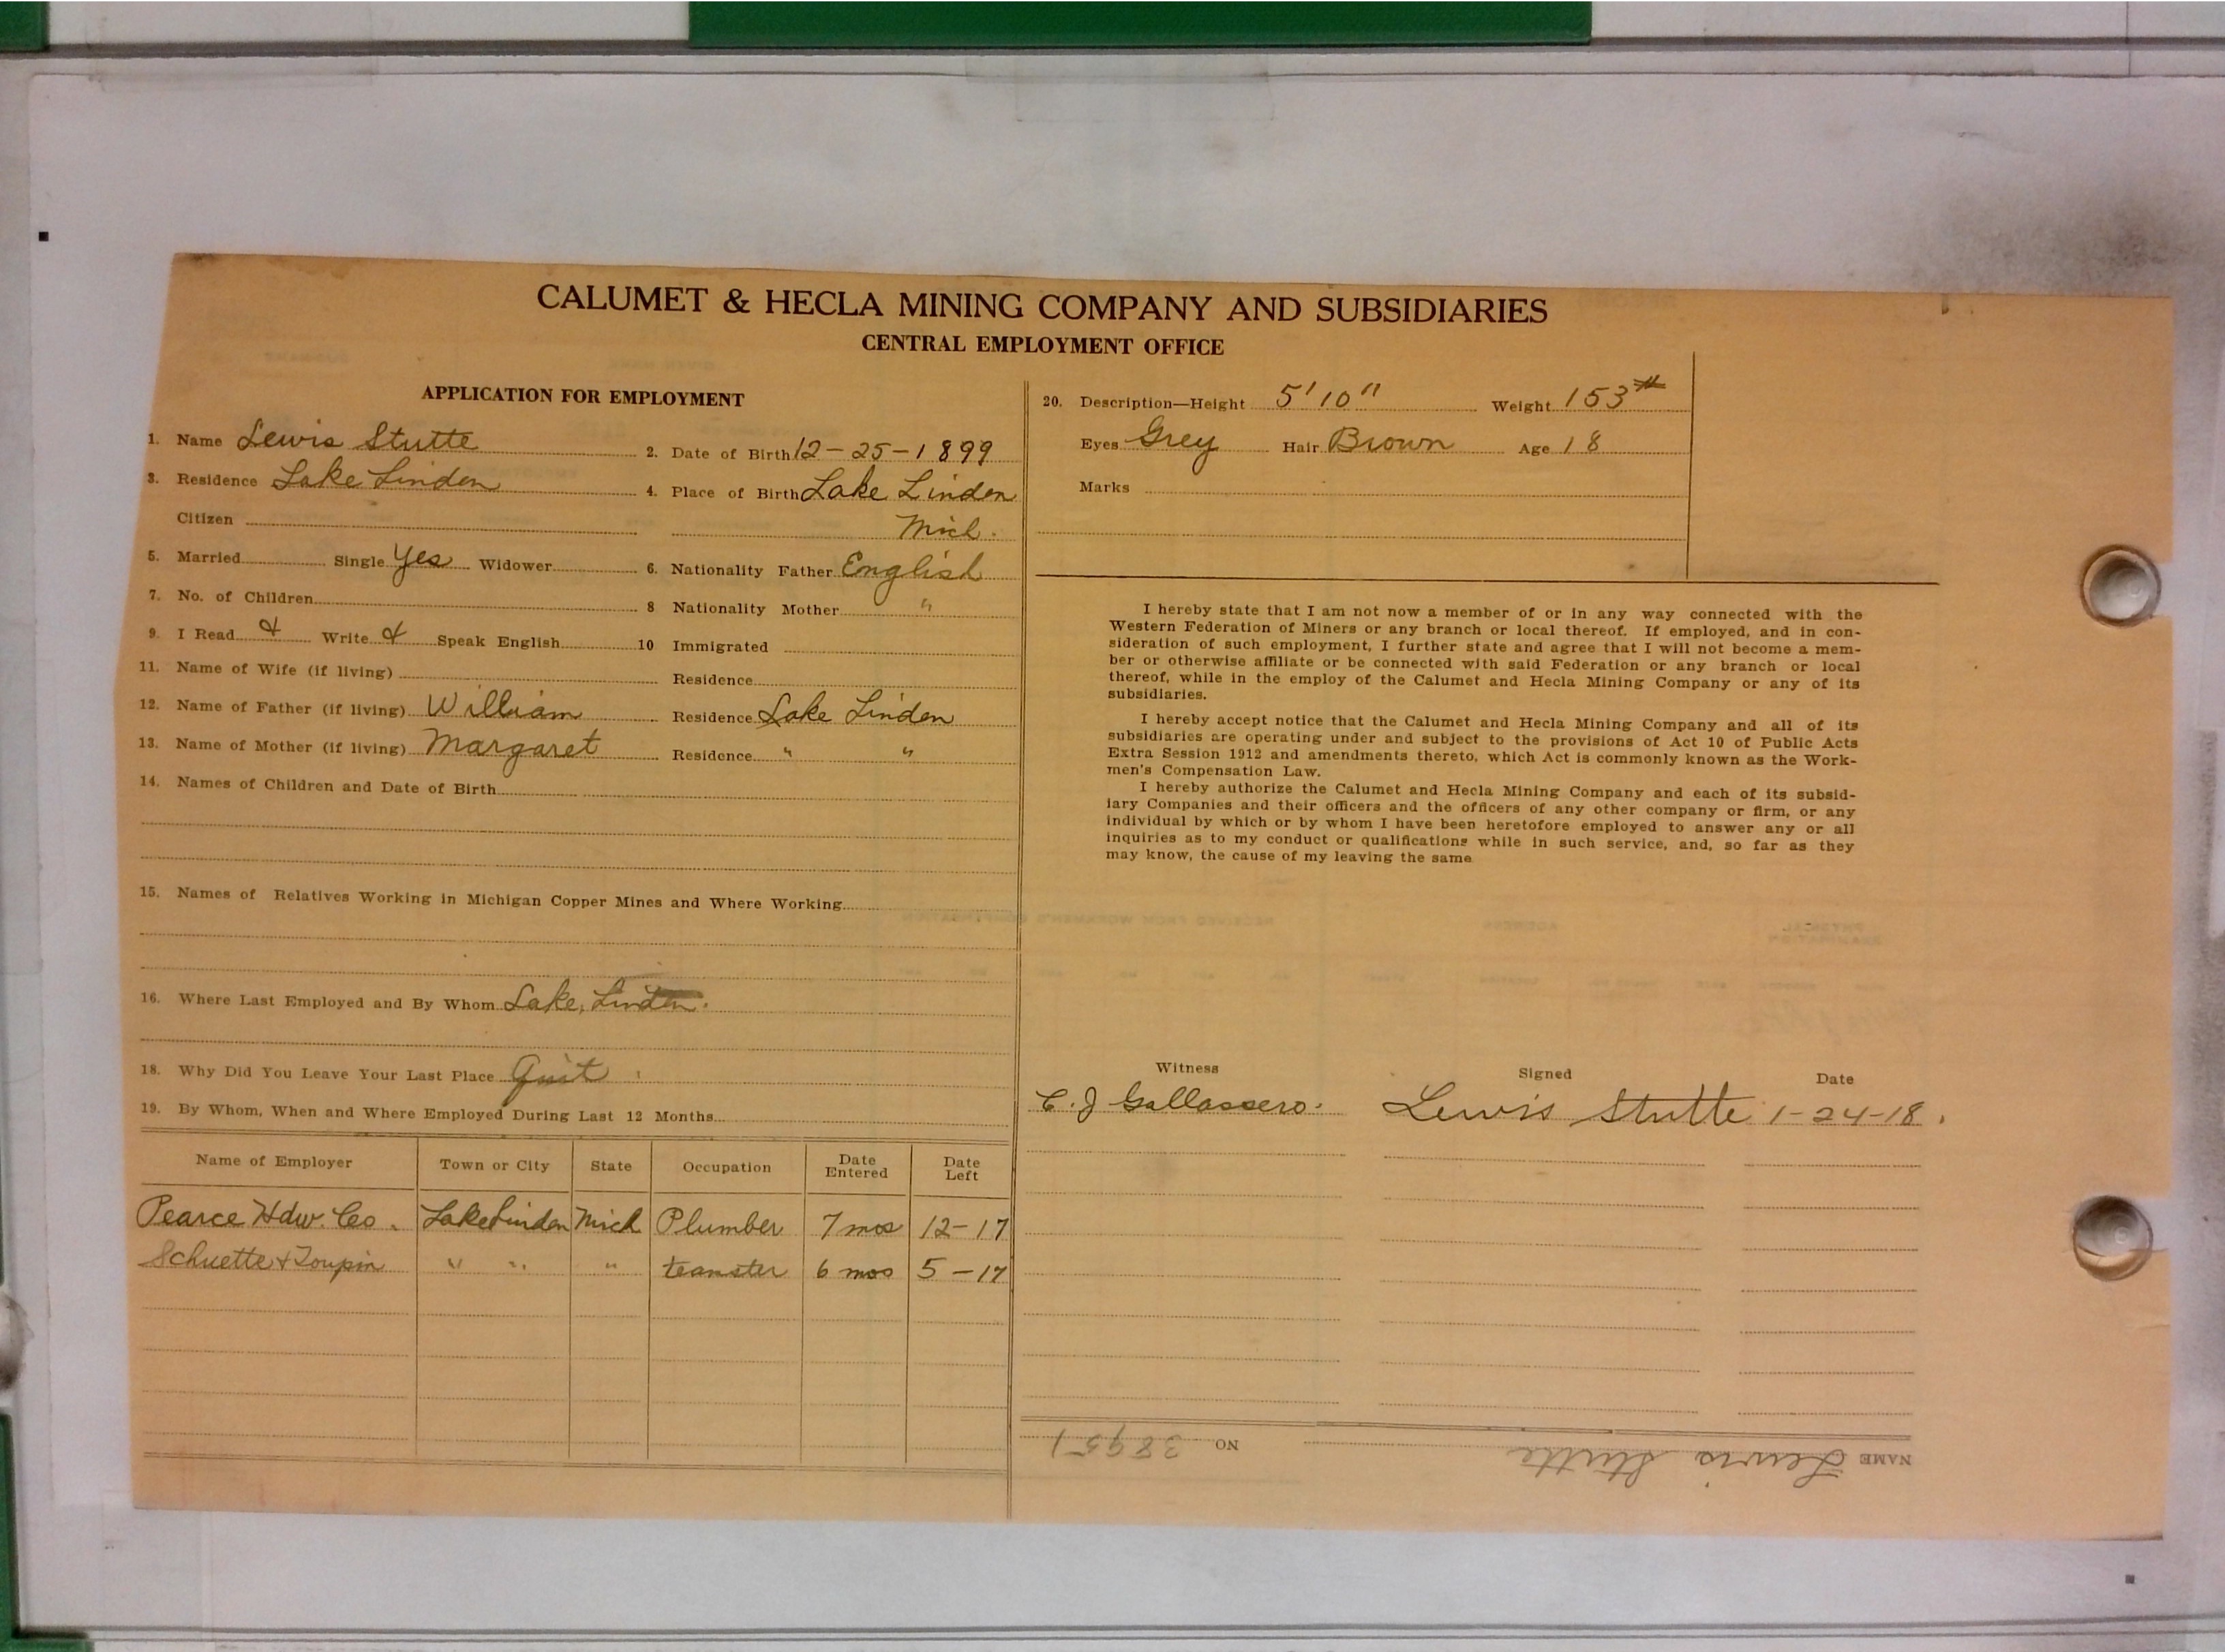 CALUMET & HECLA MINING COMPANY AND SUBSIDIARIES
CENTRAL EMPLOYMENT OFFICE
APPLICATION FOR EMPLOYMENT
1. Name Lewis Stutte 2. Date of Birth 12-25-1899
3. Residence Lake Linden 4. Place of Birth Lake Linden
Citizen Mich.
5. Married Single Yes Widower 6. Nationality Father English
7. No. of Children 8 Nationality Mother "
9. I Read & Write & Speak English 10 Immigrated
11. Name of Wife (if living) Residence
12. Name of Father (if living) William Residence Lake Linden
13. Name of Mother (if living) Margaret Residence " "
14. Names of Children and Date of Birth
15. Names of Relatives Working in Michigan Copper Mines and Where Working
16. Where Last Employed and By Whom Lake Linden.
18. Why Did You Leave Your Last Place Quit
19. By Whom, When and Where Employed During Last 12 Months
Name of Employer Town or City State Occupation Date Entered Date Left
Pearce Hdw. Co. Lake Linden Mich Plumber 7 mos 12-17
Schuette & Toupin " " " teamster 6 mos 5-17
20. Description—Height 5' 10" Weight 153#
Eyes Grey Hair Brown Age 18
Marks
I hereby state that I am not now a member of or in any way connected with the
Western Federation of Miners or any branch or local thereof. If employed, and in con-
sideration of such employment, I further state and agree that I will not become a mem-
ber or otherwise affiliate or be connected with said Federation or any branch or local
thereof, while in the employ of the Calumet and Hecla Mining Company or any of its
subsidiaries.
I hereby accept notice that the Calumet and Hecla Mining Company and all of its
subsidiaries are operating under and subject to the provisions of Act 10 of Public Acts
Extra Session 1912 and amendments thereto, which Act is commonly known as the Work-
men's Compensation Law.
I hereby authorize the Calumet and Hecla Mining Company and each of its subsid-
iary Companies and their officers and the officers of any other company or firm, or any
individual by which or by whom I have been heretofore employed to answer any or all
inquiries as to my conduct or qualifications while in such service, and, so far as they
may know, the cause of my leaving the same
Witness Signed Date
C. J Gallassero. Lewis Stutte 1-24-18.
NAME Lewis Stutte NO 38951